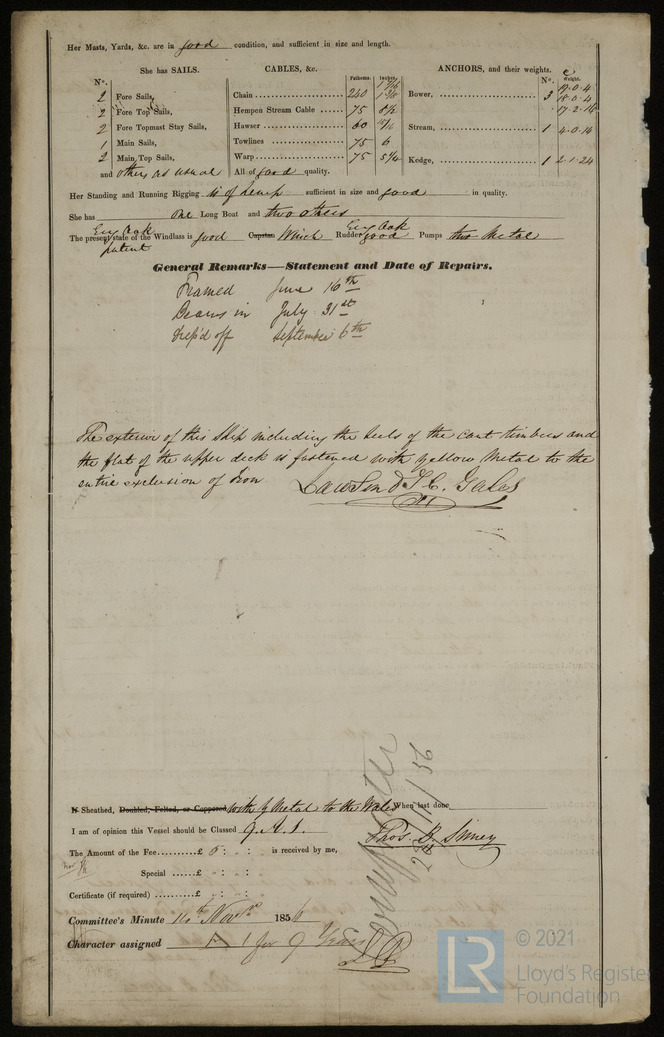 Her Masts, Yards, &c. are in good condition, and sufficient in size and length.
She has SAILS.
CABLES, &c.
ANCHORS, and their weights.
No.
2 Fore Sails,
2 Fore Top Sails,
2 Fore Topmast Stay Sails,
1 Main Sails,
2 Main Top Sails,
and others as usual
Fathoms. Inches.
Chain 240
Hempen Stream Cable 75 8 1/2
Hawser 60
Towlines 75 6
Warp 75 5 1/4
All of good quality.
No. Weight.
Bower, 3 19.0.4
18.0.4
17.2.16
Stream, 1 4.0.14
Kedge, 1 2.1.24
Her Standing and Running Rigging is of hemp sufficient in size and good in quality.
She has one Long Boat and two others
Eng Oak Eng Oak
The present state of the Windlass is good Capstan Winch Rudder good Pumps two Metal
patent
General Remarks—Statement and Date of Repairs.
Framed June 16th
Beams in July 31st
Swep'd off September 6th
The exterior of this Ship including the heels of the cant timbers and
the flat of the upper deck is fastened with yellow Metal to the
entire exclusion of Iron
28/11/56
Sheathed, Doubled, Felted, or Coppered with Y Metal to the Wales When last done
I am of opinion this Vessel should be Classed 9.A.1.
The Amount of the Fee £ 5 : is received by me,
Special £
Certificate (if required) £
Committee's Minute Novr 1856
Character assigned A 1 for 9 Years
LR
© 2021
Lloyd's Register
Foundation